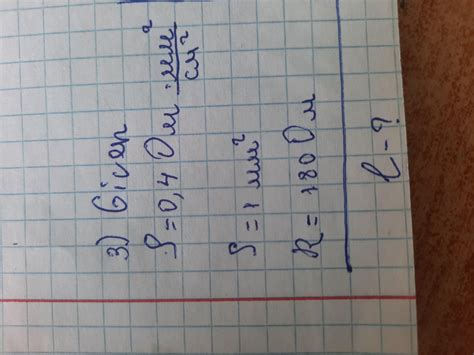 3) Given
ρ = 0,4 Ом · мм²/см²
S = 1 мм²
R = 180 Ом
l - ?